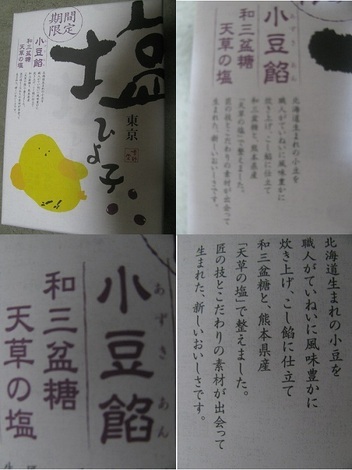 期間
限定
塩
ひよ子
東京
小豆餡
和三盆糖
天草の塩
小豆餡
あずき あん
和三盆糖
天草の塩
北海道生まれの小豆を
職人がていねいに風味豊かに
炊き上げ、こし餡に仕立て
和三盆糖と、熊本県産
「天草の塩」で整えました。
匠の技とこだわりの素材が出会って
生まれた、新しいおいしさです。
小豆餡
あずき あん
和三盆糖
天草の塩
北海道生まれの小豆を
職人がていねいに風味豊かに
炊き上げ、こし餡に仕立て
和三盆糖と、熊本県産
「天草の塩」で整えました。
匠の技とこだわりの素材が出会って
生まれた、新しいおいしさです。